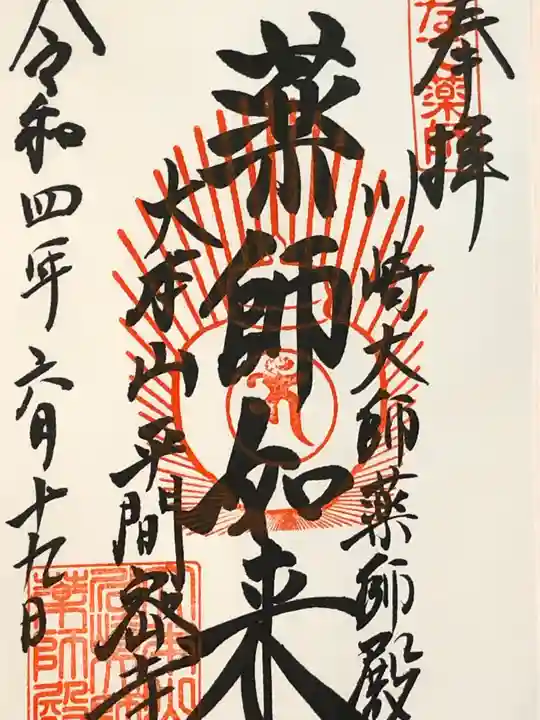 奉拝
川崎大師薬師殿
薬師如来
大本山平間密寺
令和四年六月十九日